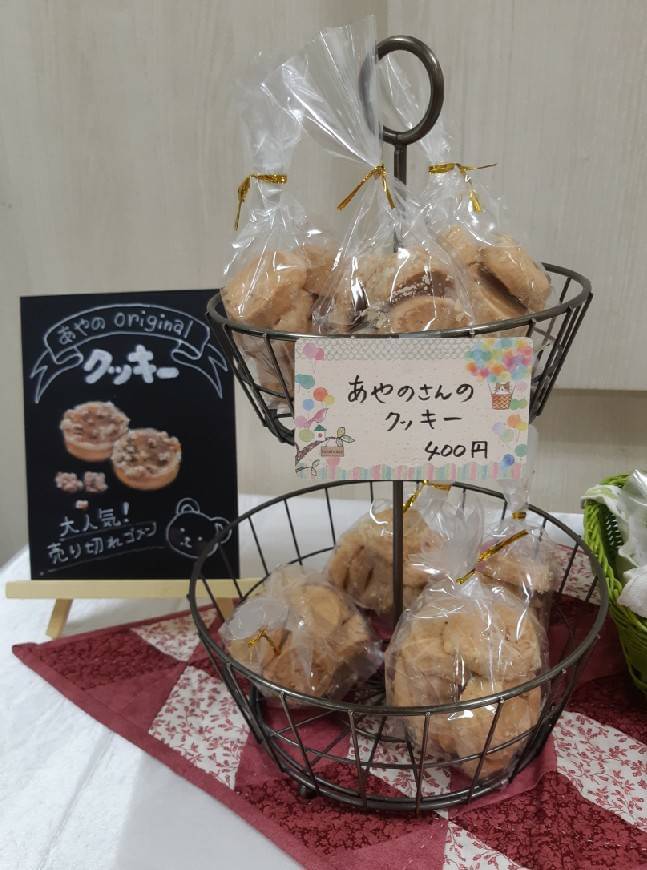 あやの original
クッキー
大人気!
売り切れゴメン
あやのさんの
クッキー
400円